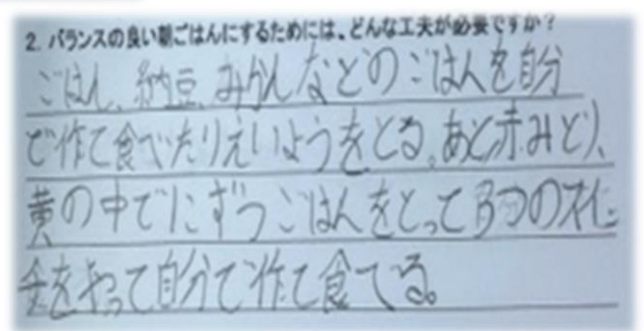 2. バランスの良い朝ごはんにするためには、どんな工夫が必要ですか?
ごはん、納豆、みかんなどのごはんを自分
で作て食べたりえいようをとる。あと赤みどり、
黄の中でにずつごはんをとって3つのスイ
をやって自分で作て食てる。